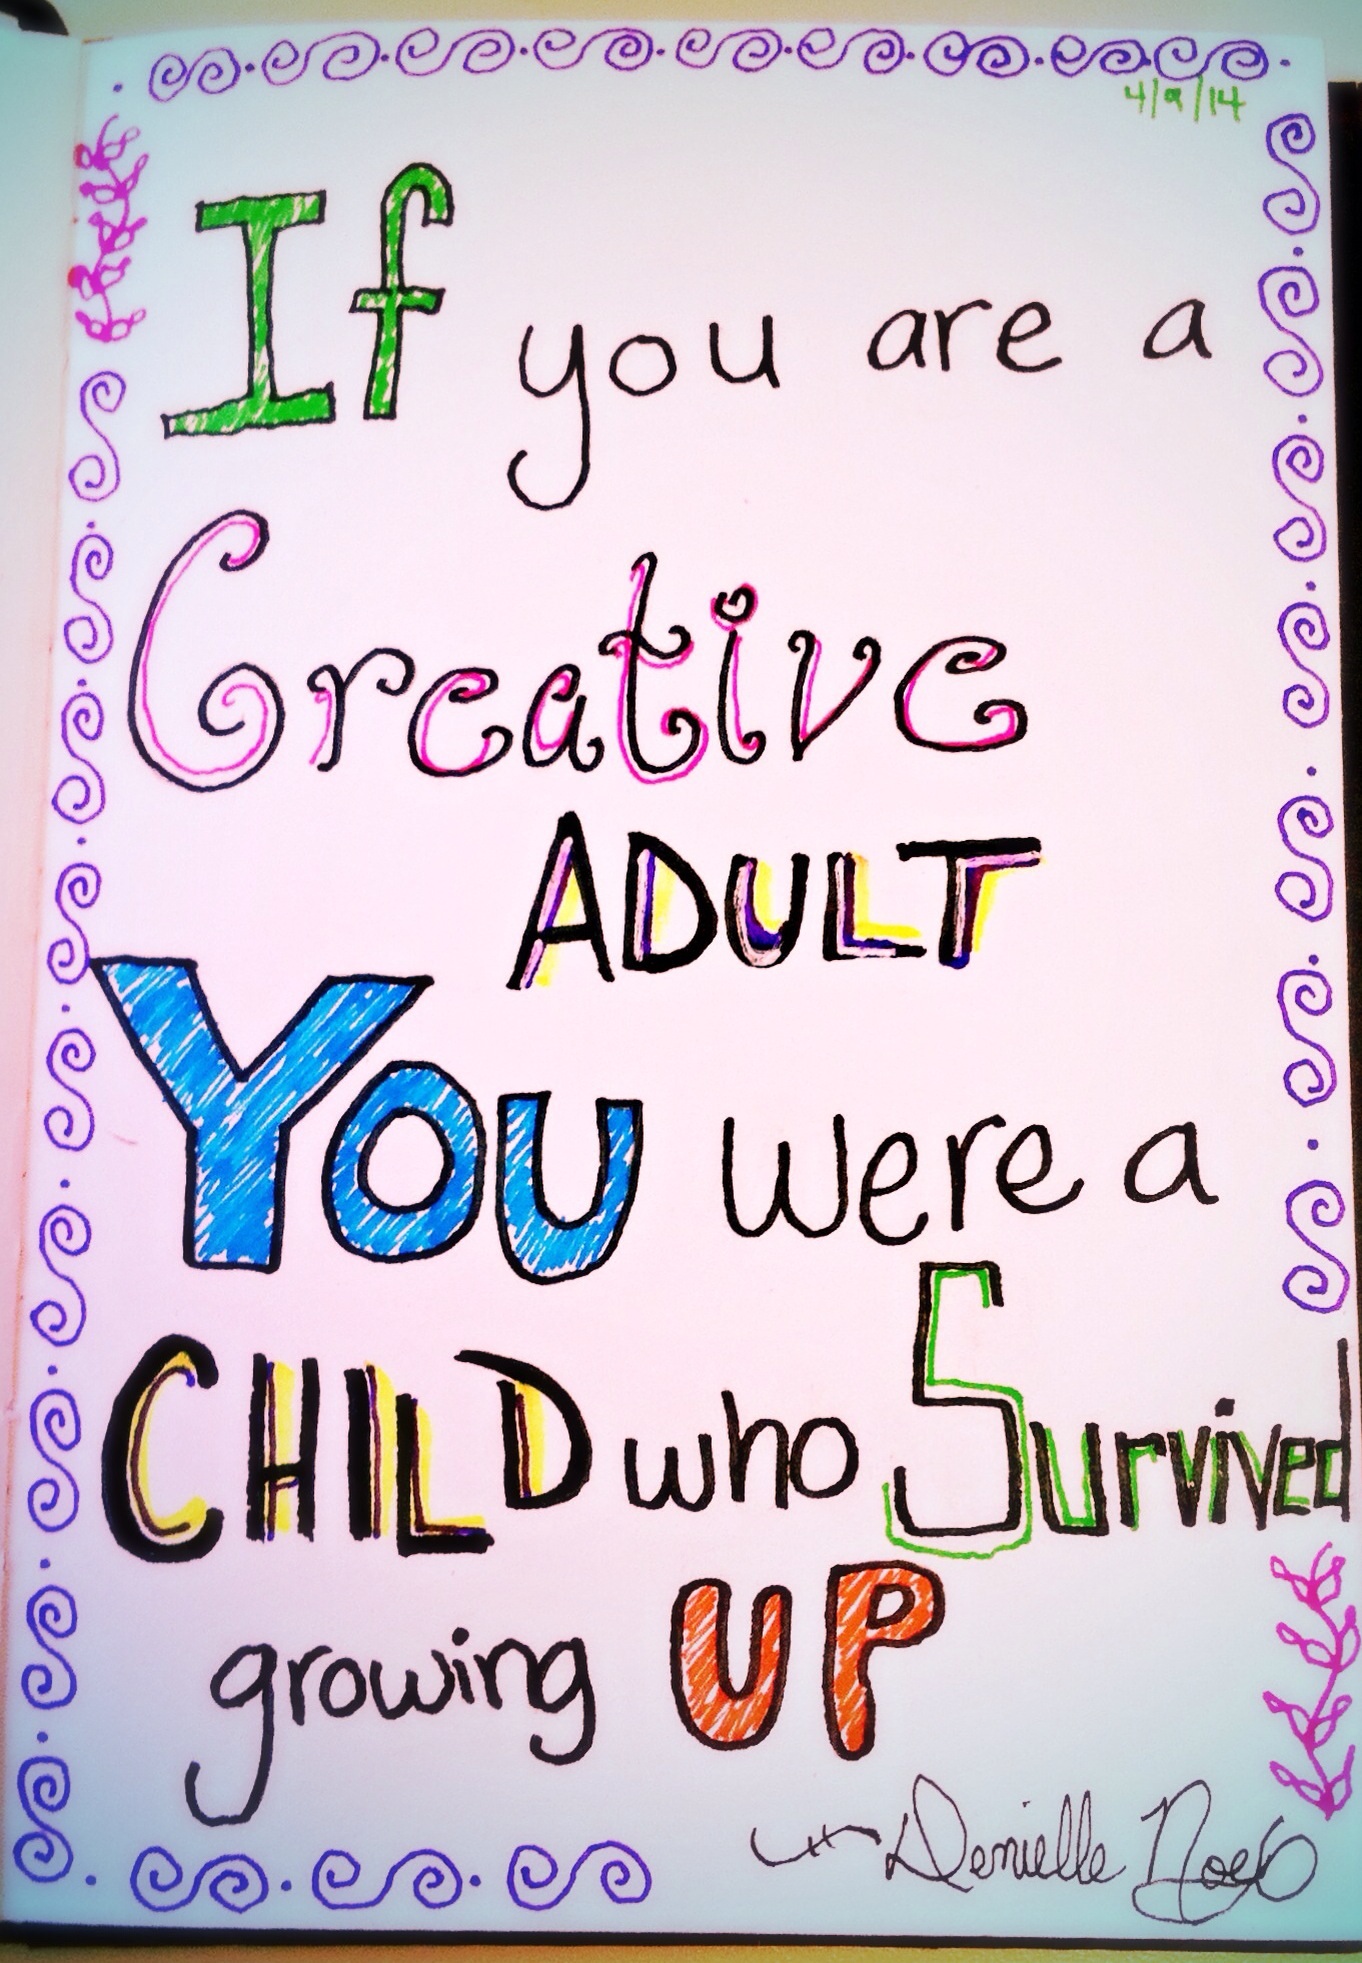 4/9/14
If you are a
Creative
ADULT
YOU were a
CHILD who Survived
growing UP
Denielle Noe